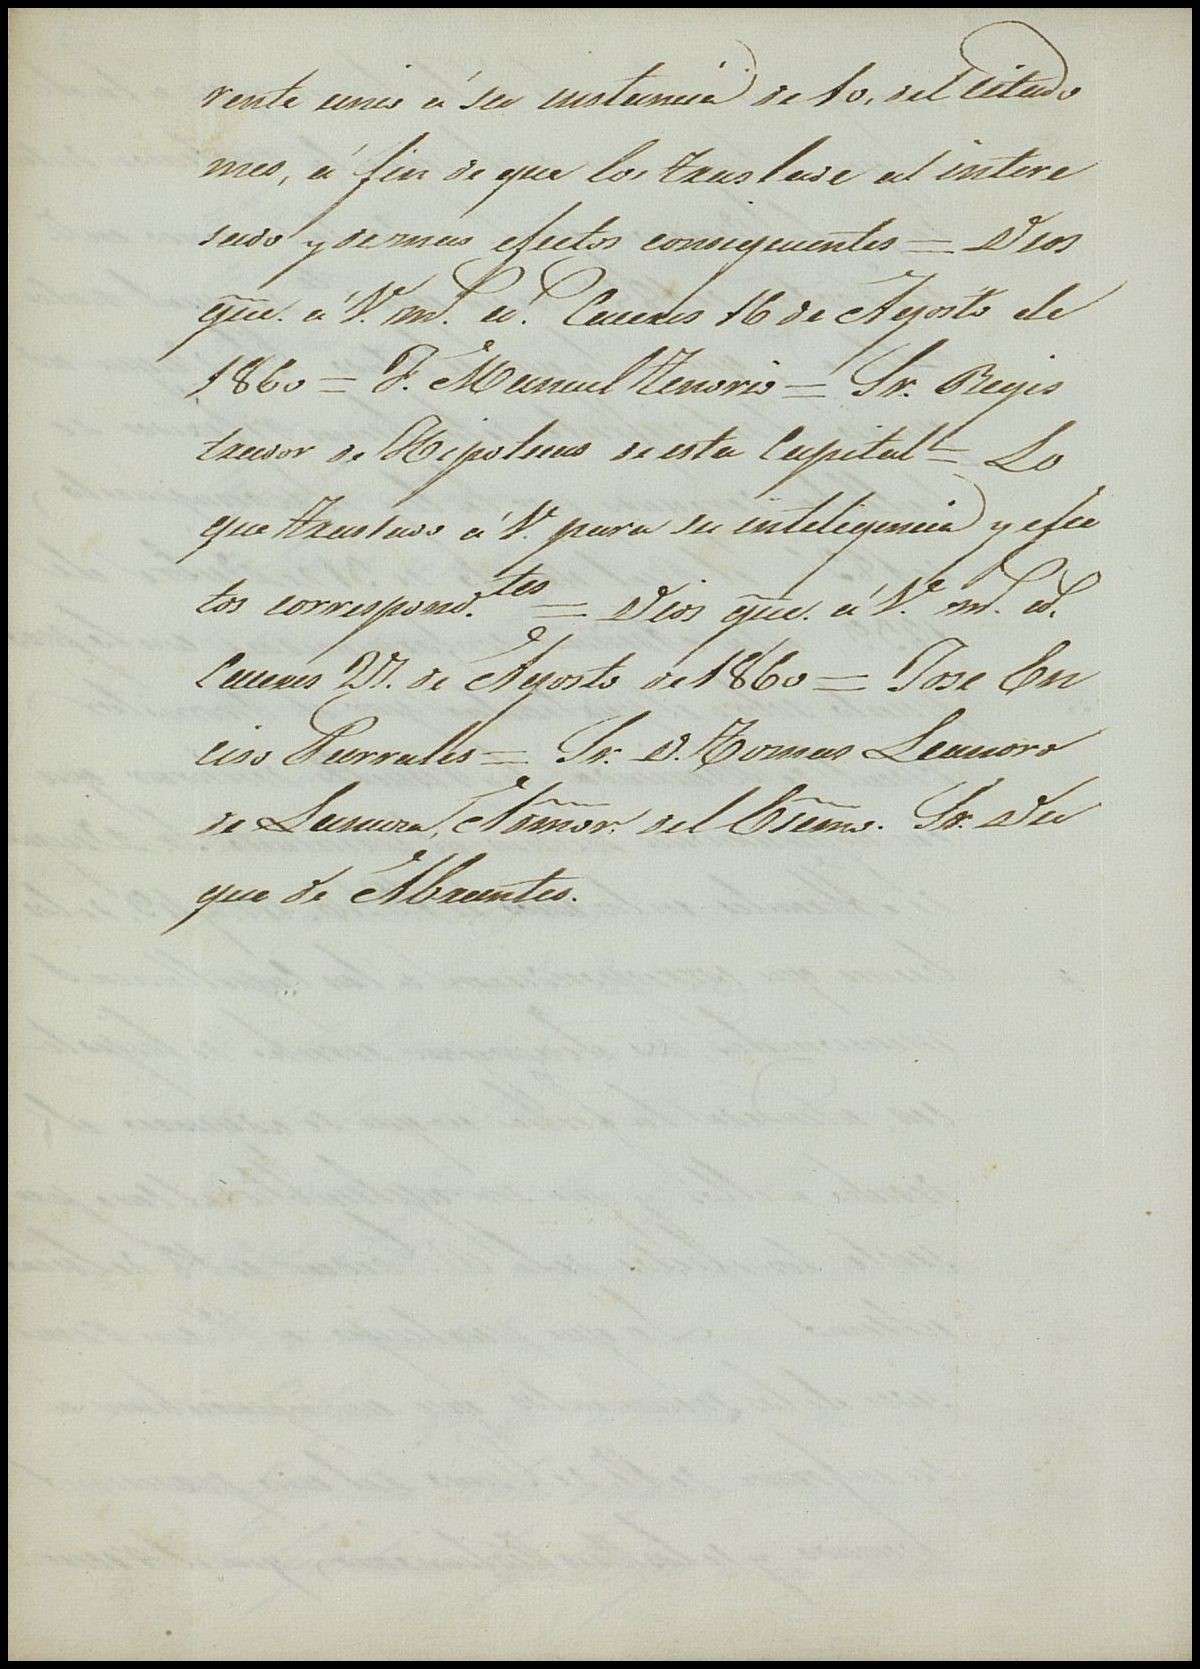 rente unió á su instancia de 10, del citado
mes, á fin de que lo traslade al intere
sado y demas efectos consiguientes = Dios
gũe. á V. m.ˢ a.ˢ Caceres 16 de Agosto de
1860 = F. Manuel Tenorio = Sr. Regis
trador de Hipotecas de esta Capital = Lo
que traslado á V. para su inteligencia y efec
tos correspond.tes = Dios gũe. á V. m.ˢ a.ˢ
Caceres 27. de Agosto de 1860 = Jose En
ciso Parrales = Sr. D. Tomas Leandro
de Lanuza, Admor. del Escmo. Sr. Du
que de Abrantes.